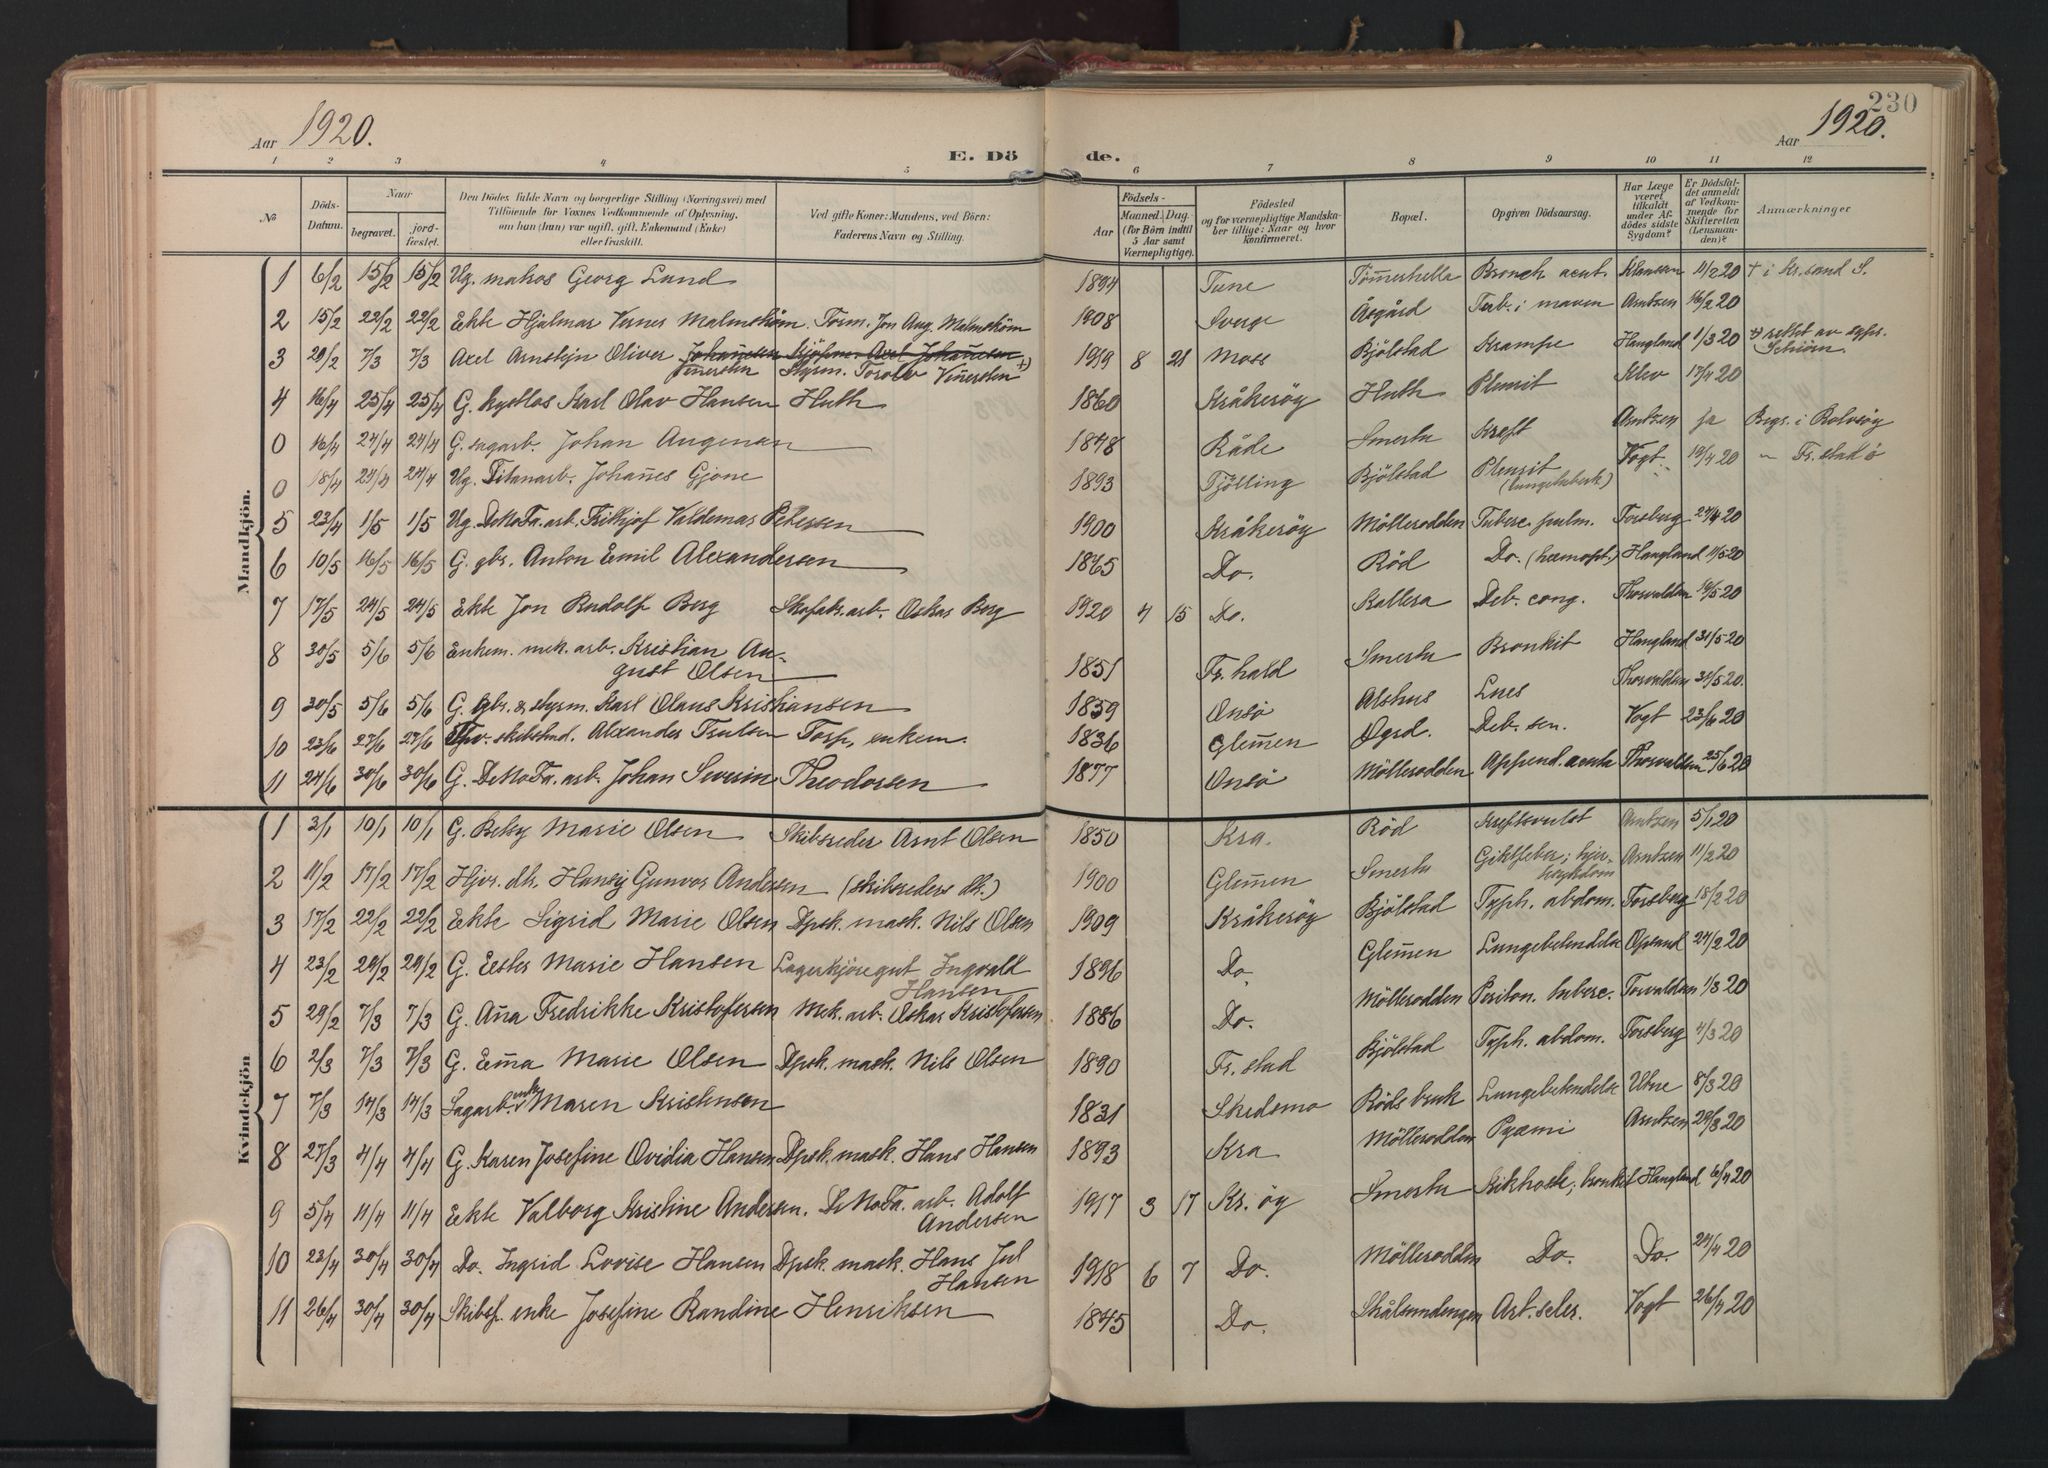 230
Aar 1920.
E. Dö de.
Aar 1920.
1 2 3 4 5 6 7 8 9 10 11 12
No
Döds-Datum.
Naar
begravet.
jord-fæstet.
Den Dödes fulde Navn og borgerlige Stilling (Næringsvei) med
Tilföiende for Voxnes Vedkommende af Oplysning,
om han (hun) var ugift, gift, Enkemand (Enke)
eller fraskilt.
Ved gifte Koner: Mandens, ved Börn:
Faderens Navn og Stilling.
Födsels-
Aar
Maaned. Dag.
(for Börn indtil
5 Aar samt
Værnepligtige).
Födested
og for værnepligtige Mandska-
ber tillige: Naar og hvor
konfirmeret.
Bopæl.
Opgiven Dödsaarsag.
Har Læge
været
tilkaldt
under Af-
dödes sidste
Sygdom?
Er Dödsfal-
det anmeldt
af Vedkom-
mende for
Skifteretten
(Lensman-
den)?
Anmærkninger
Mandkjön.
1 6/2 15/2 15/2 Ug. matros Georg Lund 1894 Tune Tömmerhella Bronch. acut. Klaussen 11/2 20 + i Kr.sand S.
2 15/2 22/2 22/2 Ekte Hjalmar Verner Malmström. Form. Jon Aug. Malmström 1908 Sverge Åsgård Tub. i maven Arntzen 16/2 20
3 29/2 7/3 7/3 Axel Arnstejn Oliver Johannesen Kjöbm. Axel Johannesen 1919 8 21 Moss Bjölstad Krampe Haugland 1/3 20 +) rettet av sypr.
Finersten Styrm. Torolv Finersten +) Schiörn.
4 16/4 25/4 25/4 G. kystlos Karl Olav Hansen Huth 1860 Kråkeröy Huth Plevrit Klev 17/4 20
0 16/4 24/4 24/4 G. sagarb. Johan Augenan 1848 Råde Smertu Kreft Arntzen ja Begr. i Rolvsöy
0 18/4 24/4 24/4 Ug. Titanarb. Johannes Gjone 1893 Tjölling Bjölstad Plevrit Vogt 19/4 20 " Fr.stad ö
(lungetuberk.)
5 23/4 1/5 1/5 Ug. DeNoFa. arb. Fridtjof Valdemar Petersen 1900 Kråkeröy Möllerodden Tuberc. pulm. Forsberg 27/4 20
6 10/5 16/5 16/5 G. gbr. Anton Emil Alexandersen 1865 Do. Röd Do. (hæmopt.) Haugland 11/5 20
7 17/5 24/5 24/5 Ekte Jon Rudolf Berg Skofabr. arb. Oskar Berg 1920 4 15 Do. Kallera Deb. cong. Thorvaldsen 19/5 20
8 30/5 5/6 5/6 Enkem. mek. arb. Kristian Au-
gust Olsen 1851 Fr. hald Smertu Bronkit Haugland 31/5 20
9 30/5 5/6 5/6 G. gbr. & styrm. Karl Olaus Kristiansen 1839 Onsö Alshus Lues Thorvaldsen 31/5 20.
10 23/6 27/6 27/6 Fhv. skibstmd. Alexander Trulsen Torp, enkem. 1836 Glemmen Ögrd. Deb. sen. Vogt 23/6 20
11 24/6 30/6 30/6 G. DeNoFa. arb. Johan Severin Theodorsen 1877 Onsö Möllerodden Append. acuta Thorvaldsen 25/6 20
Kvindekjön
1 3/1 10/1 10/1 G. Betsy Marie Olsen Skibsreder Arnt Olsen 1850 Kra. Röd Kreftsvulst Arntzen 5/1 20
2 11/2 17/2 17/2 Hjv. dtr. Hansy Gunvor Andersen (skibsreders dtr.) 1900 Glemmen Smertu Giktfeber; hjer- Arntzen 11/2 20
tesykdom
3 17/2 22/2 22/2 Ekte Sigrid Marie Olsen Dpsk. mask. Nils Olsen 1909 Kråkeröy Bjölstad Typh. abdom. Forsberg 18/2 20
4 23/2 29/2 29/2 G. Ester Marie Hansen Lagerkjöregut Ingvald 1896 Do. Glemmen Lungebetendelse Opsand 24/2 20
Hansen
5 29/2 7/3 7/3 G. Anna Fredrikke Kristofersen Mek. arb. Oskar Kristofersen 1886 Do. Möllerodden Periton. tuberc. Torvaldsen 1/3 20
6 2/3 7/3 7/3 G. Emma Marie Olsen Dpsk. mask. Nils Olsen 1890 Fr. stad Bjölstad Typh. abdom. Forsberg 4/3 20
7 7/3 14/3 14/3 Sagarb. enke Maren Kristensen 1831 Skedsmo Röds bruk Lungebetendelse Utne 8/3 20
8 27/3 4/4 4/4 G. Karen Josefine Ovidia Hansen Dpsk. mask. Hans Hansen 1893 Kra Möllerodden Pyæmi Arntzen 29/3 20
9 5/4 11/4 11/4 Ekte Valborg Kristine Andersen. DeNoFa. arb. Adolf 1917 3 17 Kr. öy Smertu Kikhoste; bronkit Haugland 6/4 20
Andersen
10 23/4 30/4 30/4 Do. Ingrid Lovise Hansen Dpsk. mask. Hans Jul 1918 6 7 Do. Möllerodden Do. Do. 24/4 20
Hansen
11 26/4 30/4 30/4 Skibsf. enke Josefine Randine Henriksen 1845 Do. Skålsundengen Art. scler. Vogt 26/4 20